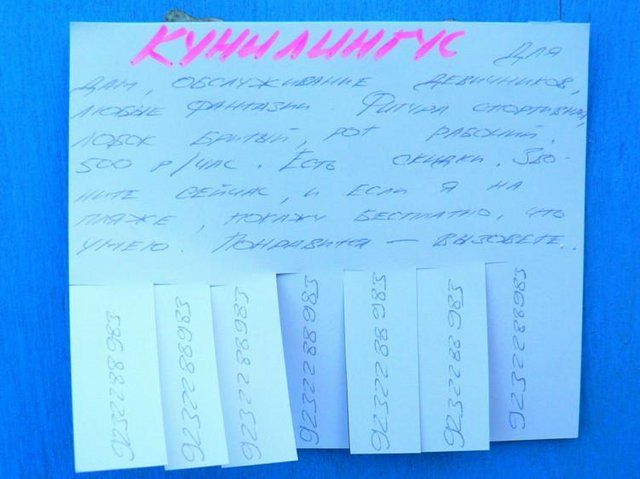 КУНИЛИНГУС ДЛЯ
ДАМ, ОБСЛУЖИВАНИЕ ДЕВИЧНИКОВ,
ЛЮБЫЕ ФАНТАЗИИ ФИГУРА СПОРТИВНАЯ,
ЛОБОК БРИТЫЙ, РОТ РАБОЧИЙ.
500 Р/ЧАС. ЕСТЬ СКИДКИ. ЗВО-
НИТЕ СЕЙЧАС, И ЕСЛИ Я НА
ПЛЯЖЕ, ПОКАЖУ БЕСПЛАТНО, ЧТО
УМЕЮ. ПОНРАВИТСЯ — ВЫЗОВЕТЕ.
9232288983
9232288983
9232288983
9232288983
9232288983
9232288983
9232288983